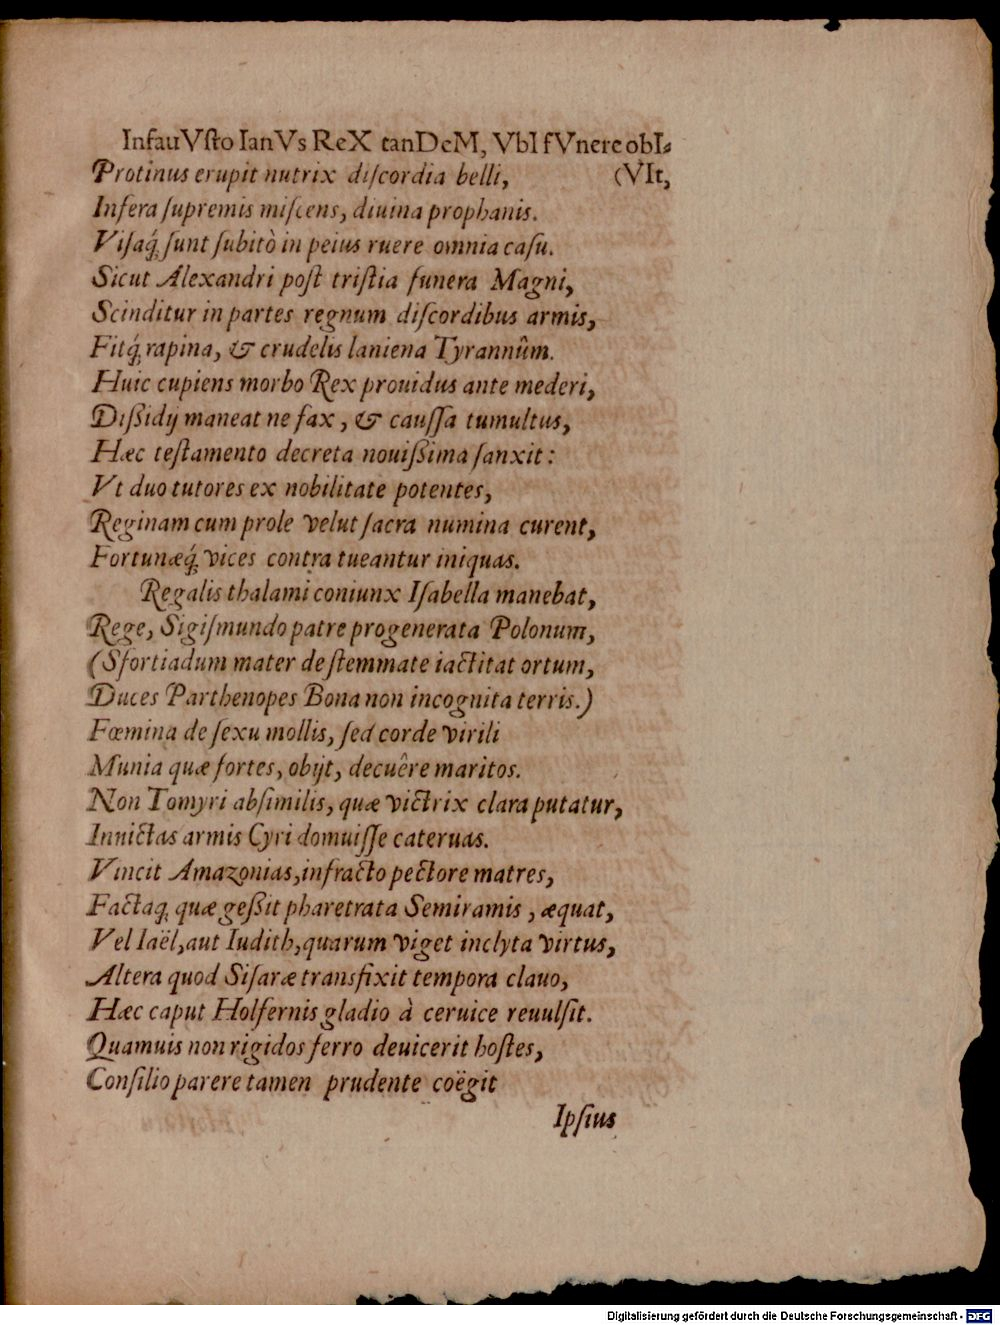 InfauVſto IanVs ReX tanDeM, VbI fVnere obI⸗
Protinus erupit nutrix diſcordia belli, (VIt,
Infera ſupremis miſcens, diuina prophanis.
Viſaq́; ſunt ſubitò in peius ruere omnia caſu.
Sicut Alexandri poſt triſtia funera Magni,
Scinditur in partes regnum diſcordibus armis,
Fitq́; rapina, & crudelis laniena Tyrannûm.
Huic cupiens morbo Rex prouidus ante mederi,
Diſsidij maneat ne fax, & cauſſa tumultus,
Hæc teſtamento decreta nouiſsima ſanxit:
Vt duo tutores ex nobilitate potentes,
Reginam cum prole velut ſacra numina curent,
Fortunæq́; vices contra tueantur iniquas.
Regalis thalami coniunx Iſabella manebat,
Rege, Sigiſmundo patre progenerata Polonum,
(Sfortiadum mater de ſtemmate iactitat ortum,
Duces Parthenopes Bona non incognita terris.)
Fœmina de ſexu mollis, ſed corde virili
Munia quæ fortes, obijt, decuêre maritos.
Non Tomyri abſimilis, quæ victrix clara putatur,
Inuictas armis Cyri domuiſſe cateruas.
Vincit Amazonias, infracto pectore matres,
Factaq; quæ geſsit pharetrata Semiramis, æquat,
Vel Iaël, aut Iudith, quarum viget inclyta virtus,
Altera quod Siſaræ transfixit tempora clauo,
Hæc caput Holfernis gladio à ceruice reuulſit.
Quamuis non rigidos ferro deuicerit hoſtes,
Conſilio parere tamen prudente coëgit
Ipſius
Digitalisierung gefördert durch die Deutsche Forschungsgemeinschaft - DFG